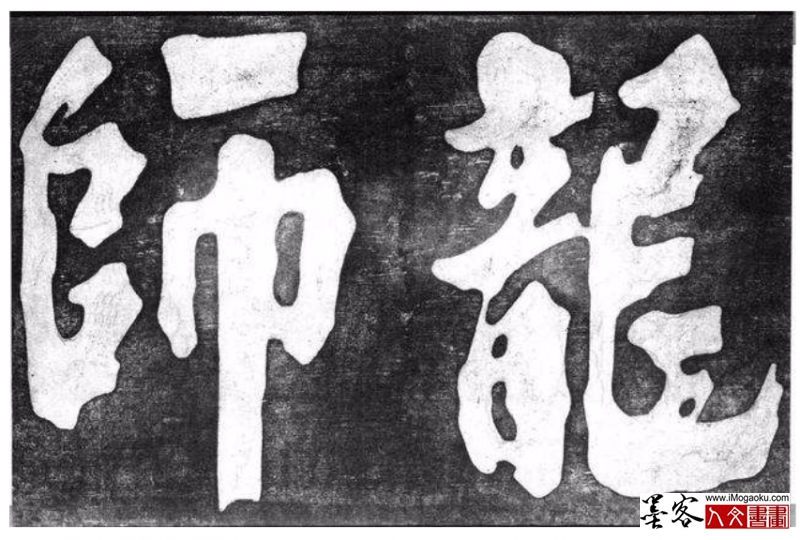 龍師
墨客
www.iMogaoku.com
人文書畫